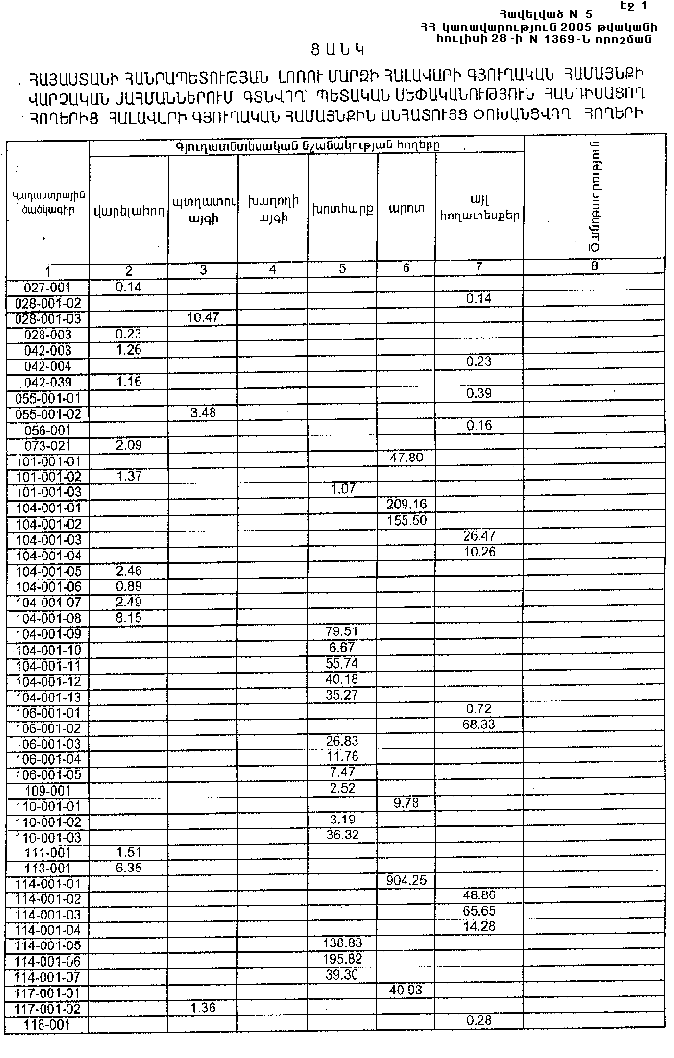 էջ 1
Հավելված N 5
ՀՀ կառավարություն 2005 թվականի
հուլիսի 28 -ի N 1369-Ն որոշման
ՑԱՆԿ
ՀԱՅԱՍՏԱՆԻ ՀԱՆՐԱՊԵՏՈՒԹՅԱՆ ԼՈՌՈՒ ՄԱՐԶԻ ՀԱԼԱՎԱՐԻ ԳՅՈՒՂԱԿԱՆ ՀԱՄԱՅՆՔԻ
ՎԱՐՉԱԿԱՆ ՍԱՀՄԱՆՆԵՐՈՒՄ ԳՏՆՎՂՂ ՊԵՏԱԿԱՆ ՍԵՓԱԿԱՆՈՒԹՅՈՒՆ ՀԱՆԴԻՍԱՑՈՂ
ՀՈՂԵՐԻՑ ՀԱԼԱՎԱՐԻ ԳՅՈՒՂԱԿԱՆ ՀԱՄԱՅՆՔԻՆ ԱՆՀԱՏՈՒՅՑ ՓՈԽԱՆՑՎՂՂ ՀՈՂԵՐԻ
Գյուղատնտեսական նշանակության հողերը
Կադաստրային ծածկագիր վարելահող պտղատու այգի խաղողի այգի խոտհարք արոտ այլ հողատեսքեր
1 2 3 4 5 6 7 8
027-001 0.14
028-001-02 0.14
028-001-03 10.47
028-003 0.23
042-003 1.26
042-004 0.23
042-039 1.16
055-001-01 0.39
055-001-02 3.48
056-001 0.16
073-021 2.09
101-001-01 47.80
101-001-02 1.37
101-001-03 1.07
104-001-01 209.16
104-001-02 155.50
104-001-03 26.47
104-001-04 10.26
104-001-05 2.46
104-001-06 0.89
104-001-07 2.49
104-001-08 8.15
104-001-09 79.51
104-001-10 6.67
104-001-11 55.74
104-001-12 40.18
104-001-13 35.27
106-001-01 0.72
106-001-02 68.33
106-001-03 26.83
106-001-04 11.76
106-001-05 7.47
109-001 2.52
110-001-01 9.78
110-001-02 3.19
110-001-03 36.32
111-001 1.51
113-001 6.35
114-001-01 904.25
114-001-02 48.80
114-001-03 65.65
114-001-04 14.28
114-001-05 138.83
114-001-06 195.82
114-001-07 39.30
117-001-01 40.93
117-001-02 1.36
118-001 0.28